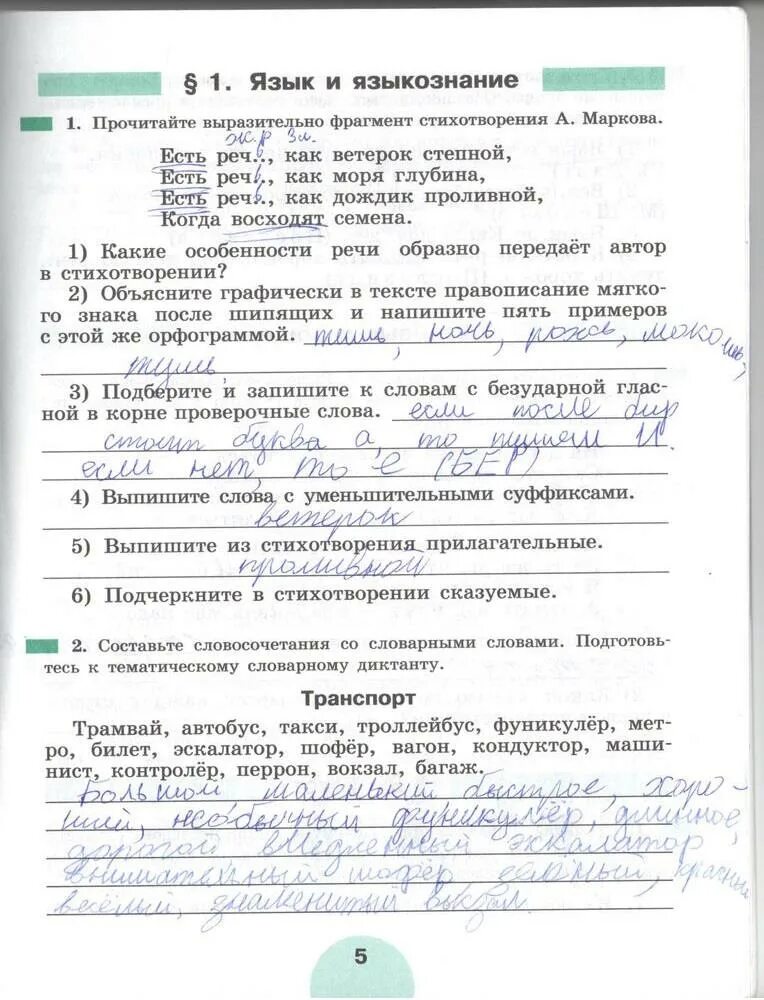 § 1. Язык и языкознание
1. Прочитайте выразительно фрагмент стихотворения А. Маркова.
ж.р 3л.
Есть реч..ь, как ветерок степной,
Есть реч..ь, как моря глубина,
Есть реч..ь, как дождик проливной,
Когда восходят семена.
1) Какие особенности речи образно передаёт автор
в стихотворении?
2) Объясните графически в тексте правописание мягко-
го знака после шипящих и напишите пять примеров
с этой же орфограммой. тишь, ночь, рожь,
тушь
3) Подберите и запишите к словам с безударной глас-
ной в корне проверочные слова. если после бир
стоит буква а, то пишем И.
если нет, то е (БЕР)
4) Выпишите слова с уменьшительными суффиксами.
ветерок
5) Выпишите из стихотворения прилагательные.
проливной
6) Подчеркните в стихотворении сказуемые.
2. Составьте словосочетания со словарными словами. Подготовь-
тесь к тематическому словарному диктанту.
Транспорт
Трамвай, автобус, такси, троллейбус, фуникулёр, мет-
ро, билет, эскалатор, шофёр, вагон, кондуктор, маши-
нист, контролёр, перрон, вокзал, багаж.
Большой, маленький быстрое, хоро-
ший, необычный фуникулёр, длинное,
дорогой эскалатор
внимательный шофёр красный
весёлый, знаменитый вокзал.
5